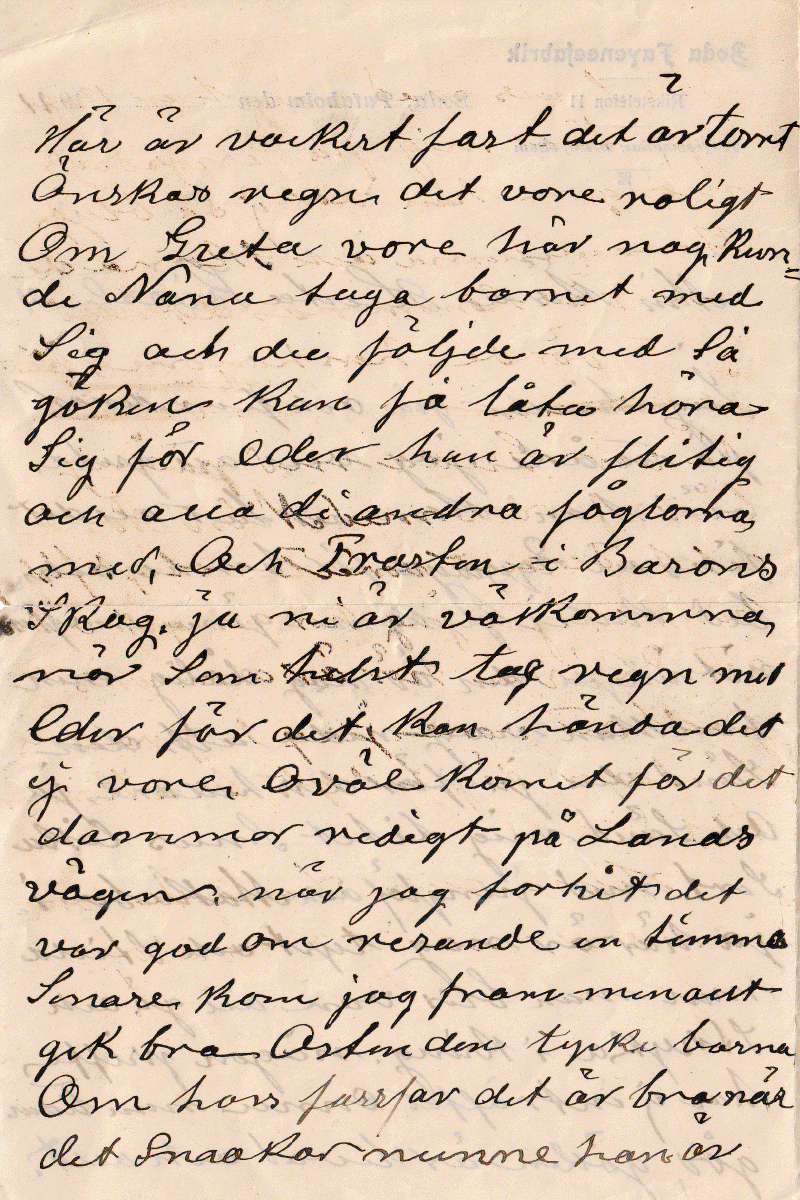 Här är vackert fast det är torrt
Önskas regn det vore roligt
Om Greta vore här nog kun=
de Nana taga barnet med
Sig och du följde med Så
göken kun få låta höra
Sig för Eder han är flitig
och alla di andra fåglorna
med, Och Trasten i Barons
Skog. ja ni är välkommna
när Som helst tag regn med
Eder för det kan hända det
ej vore Oväl komet för det
dammar redigt på Lands
vägen. när jag for hit det
var god om resande en timma
Senare kom jag fram men allt
gik bra Osten den tycke barna
Om hos farfar det är bra när
det Smakar numme han är